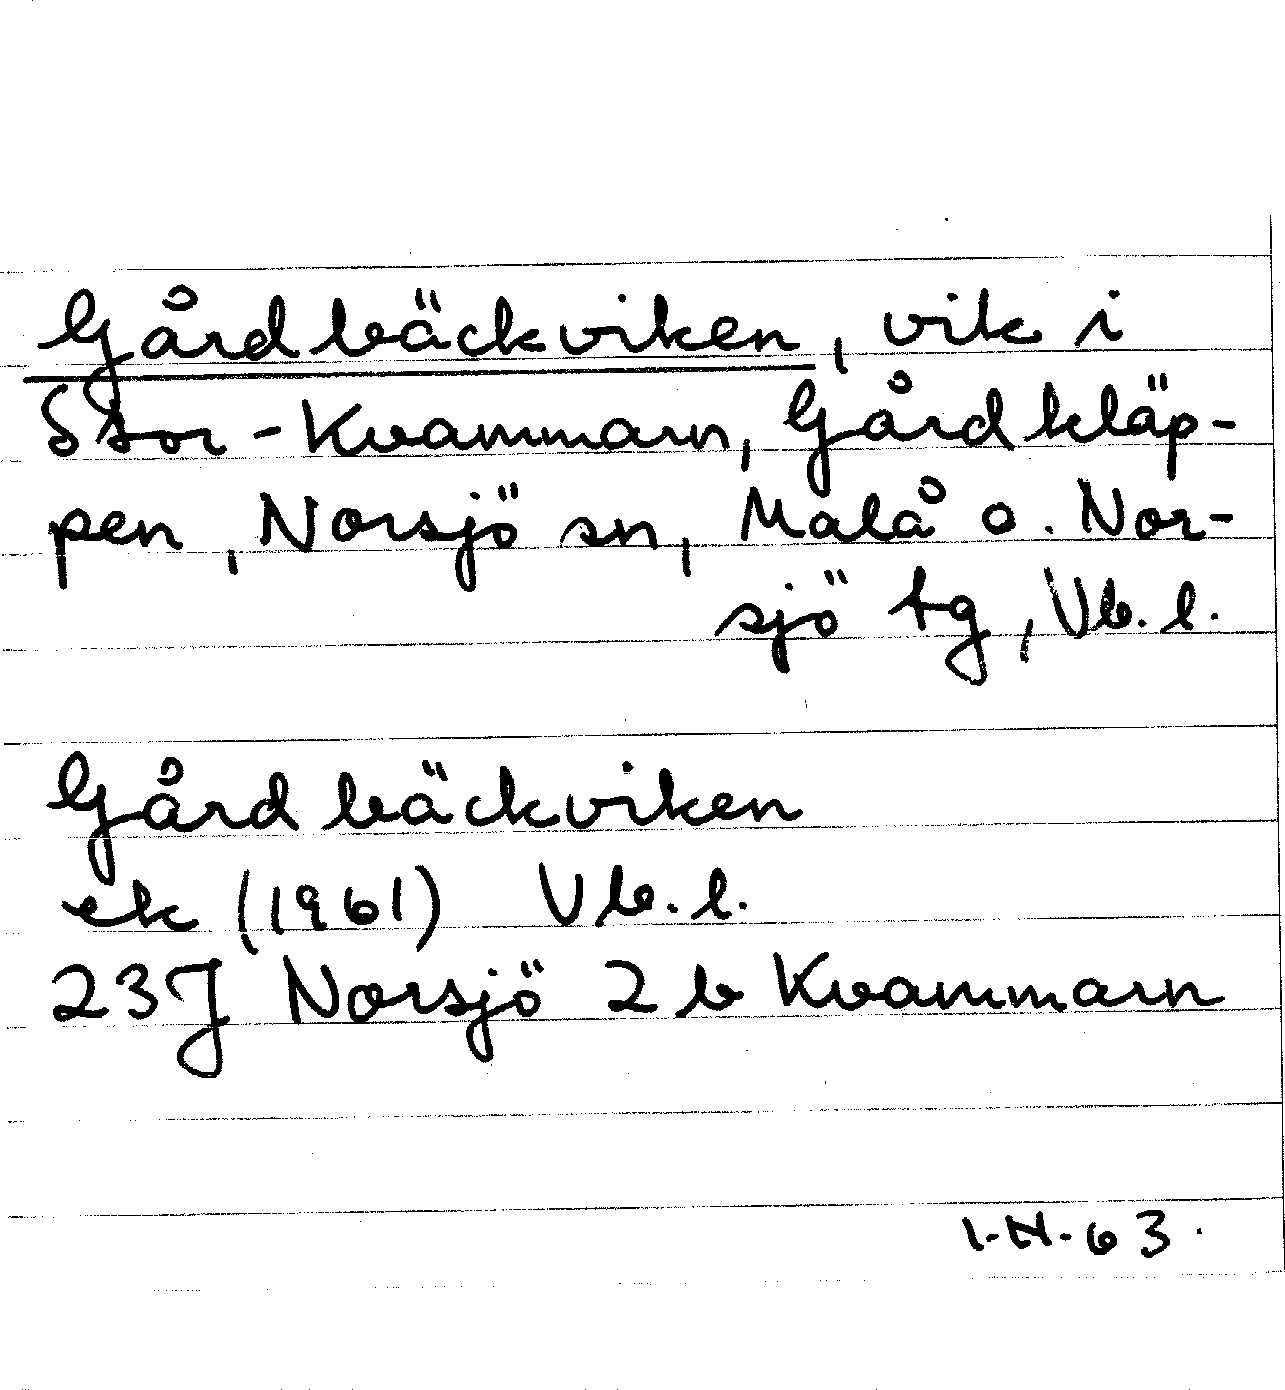 Gårdbäckviken, vik i
Stor-Kvammarn, Gårdkläp-
pen, Norsjö sn, Malå o. Nor-
sjö tg, Vb. l.
Gårdbäckviken
ek (1961) Vb. l.
23J Norsjö 2b Kvammarn
I-N-63.